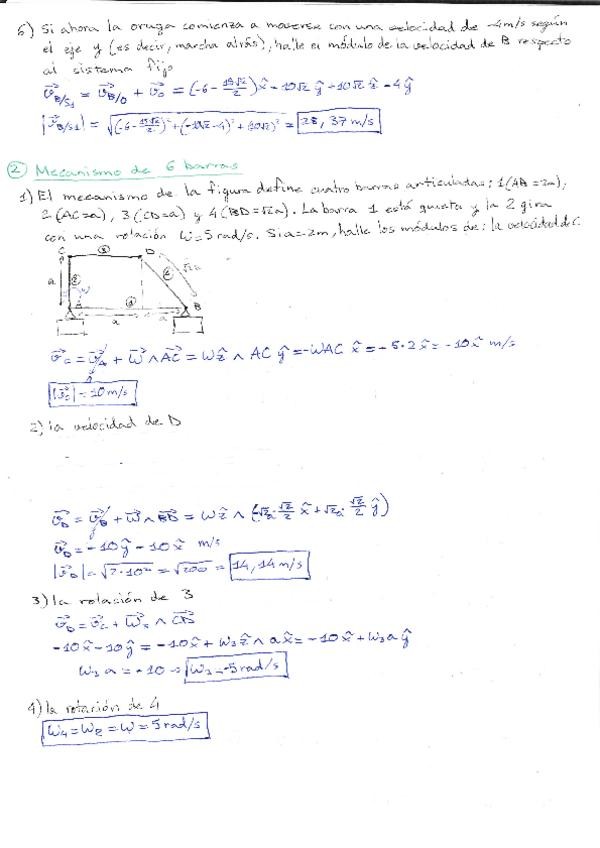 5) Si ahora la oruga comienza a moverse con una velocidad de -4m/s según
el eje y (es decir, marcha atrás), halle el módulo de la velocidad de B respecto
al sistema fijo
𝑣⃗B/S1 = 𝑣⃗B/0 + 𝑣⃗0 = (-6 - 15√2/2)x̂ - 10√2 ŷ + 10√2 ẑ - 4ŷ
|𝑣⃗B/S1| = √((-6 - 15√2/2)² + (-10√2 - 4)² + (10√2)²) = 28,37 m/s
② Mecanismo de 6 barras
1) El mecanismo de la figura define cuatro barras articuladas: 1(AB=2a),
2(AC=a), 3(CD=a) y 4(BD=√2a). La barra 1 está quieta y la 2 gira
con una rotación ω=5rad/s. Si a=2m, halle los módulos de: la velocidad de C.
C ③ D
a ② ④ √2a
A ① B
a a
𝑣⃗C = 𝑣⃗A + ω⃗ ∧ AC⃗ = ωẑ ∧ AC ŷ = -ωAC x̂ = -5·2x̂ = -10x̂ m/s
|𝑣⃗C| = 10m/s
2) la velocidad de D
𝑣⃗D = 𝑣⃗B + ω⃗ ∧ BD⃗ = ωẑ ∧ (-√2a·√2/2 x̂ + √2a·√2/2 ŷ)
𝑣⃗D = -10ŷ - 10x̂ m/s
|𝑣⃗D| = √(2·10²) = √200 = 14,14 m/s
3) la rotación de 3
𝑣⃗D = 𝑣⃗C + ω⃗3 ∧ CD⃗
-10x̂ - 10ŷ = -10x̂ + ω3ẑ ∧ ax̂ = -10x̂ + ω3aŷ
ω3a = -10 → ω3 = -5rad/s
4) la rotación de 4
ω4 = ω2 = ω = 5rad/s